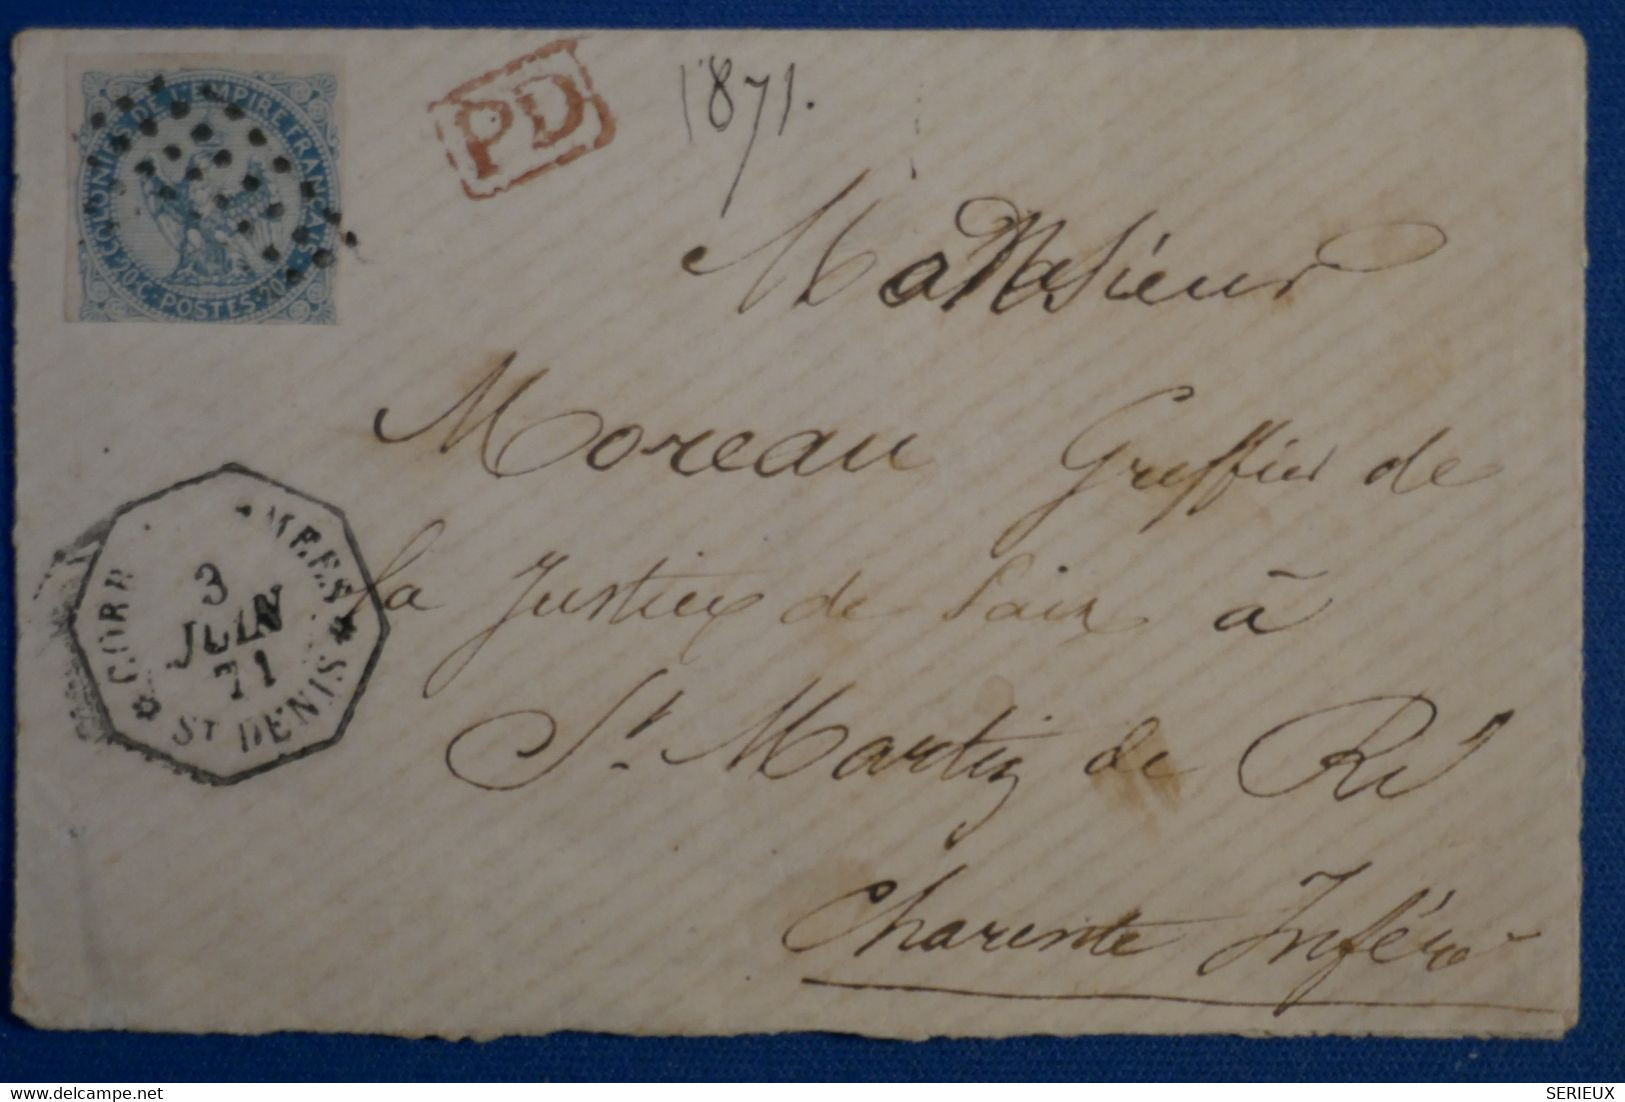 COLONIES DE L'EMPIRE FRANÇAIS
20.C. POSTES. 20
PD
1871.
Monsieur
Moreau Greffier de
la Justice de Paix à
St Martin de Ré
Charente Infére
CORR MEES
3
JUIN
71
ST DENIS
SERIEUX